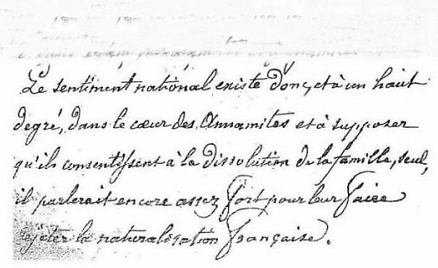 Le sentiment national existe donc, et à un haut
degré, dans le cœur des Annamites et à supposer
qu'ils consentissent à la dissolution de la famille, seul,
il parlerait encore assez fort pour leur faire
rejeter la naturalisation française.